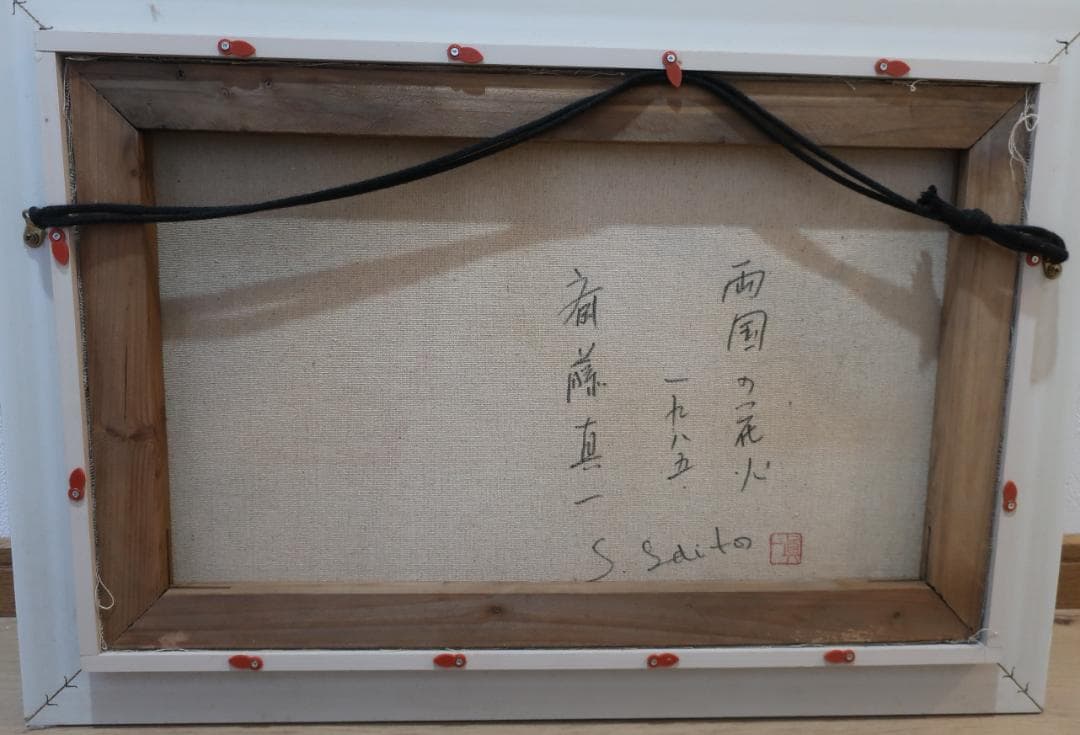 両国の花火
一九八五.
斎藤真一
S. Saito
真一